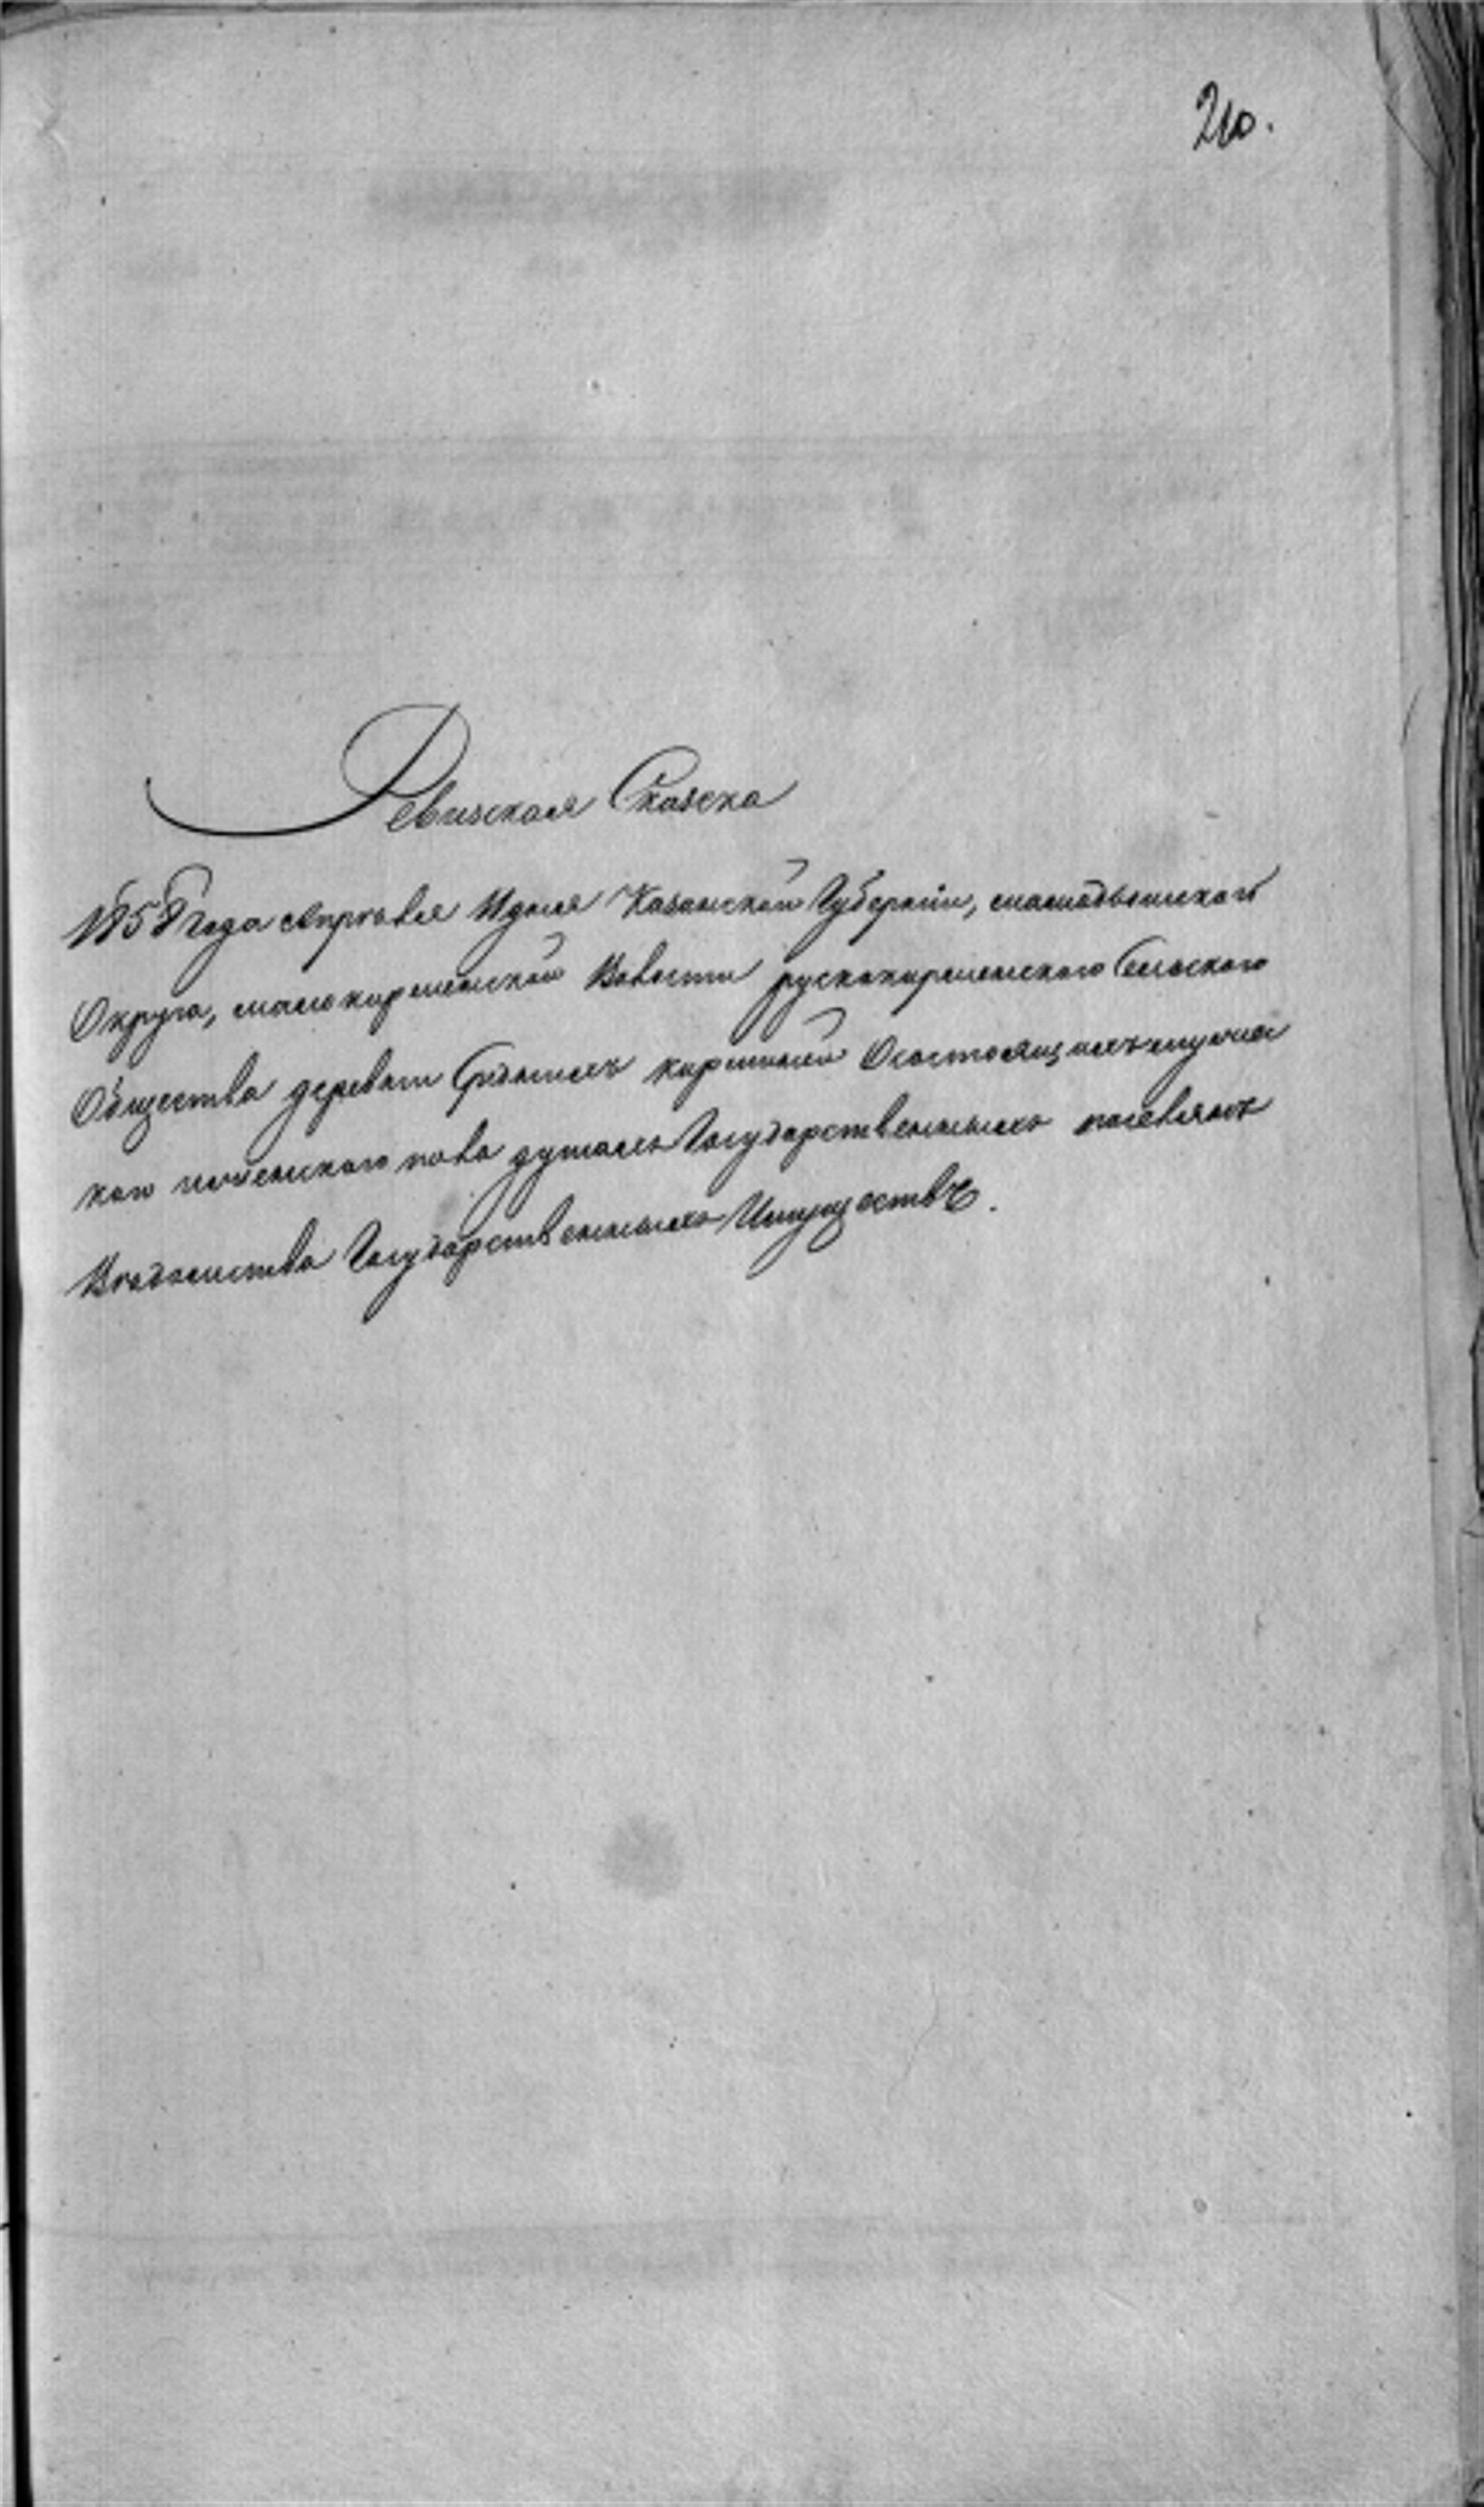 210.
Ревизская Сказка
1858 Года Апреля дня Казанской Губернии, мамадышского
Округа, малокирменской Волости рускокирменского Сельского
Общества деревни Средних кирмений О состоящих мужеска
го и женского пола душах Государственных поселянъ
Ведомства Государственных Имуществъ.